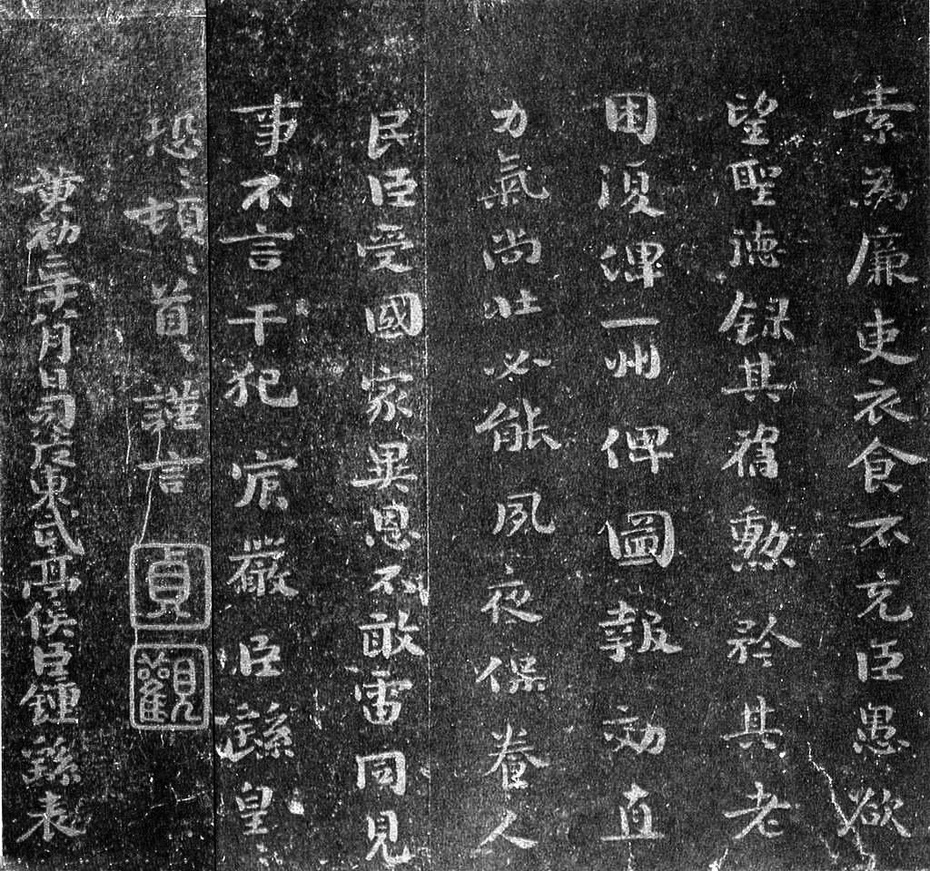 素為廉吏衣食不充臣愚欲
望聖德録其舊勳矜其老
困復俾一州俾圖報効直
力氣尚壯必能夙夜保養人
民臣受國家異恩不敢雷同見
事不言干犯宸嚴臣繇皇〻
恐〻頓〻首〻謹言
貞
觀
黃初二年八月日司徒東武亭侯臣鍾繇表